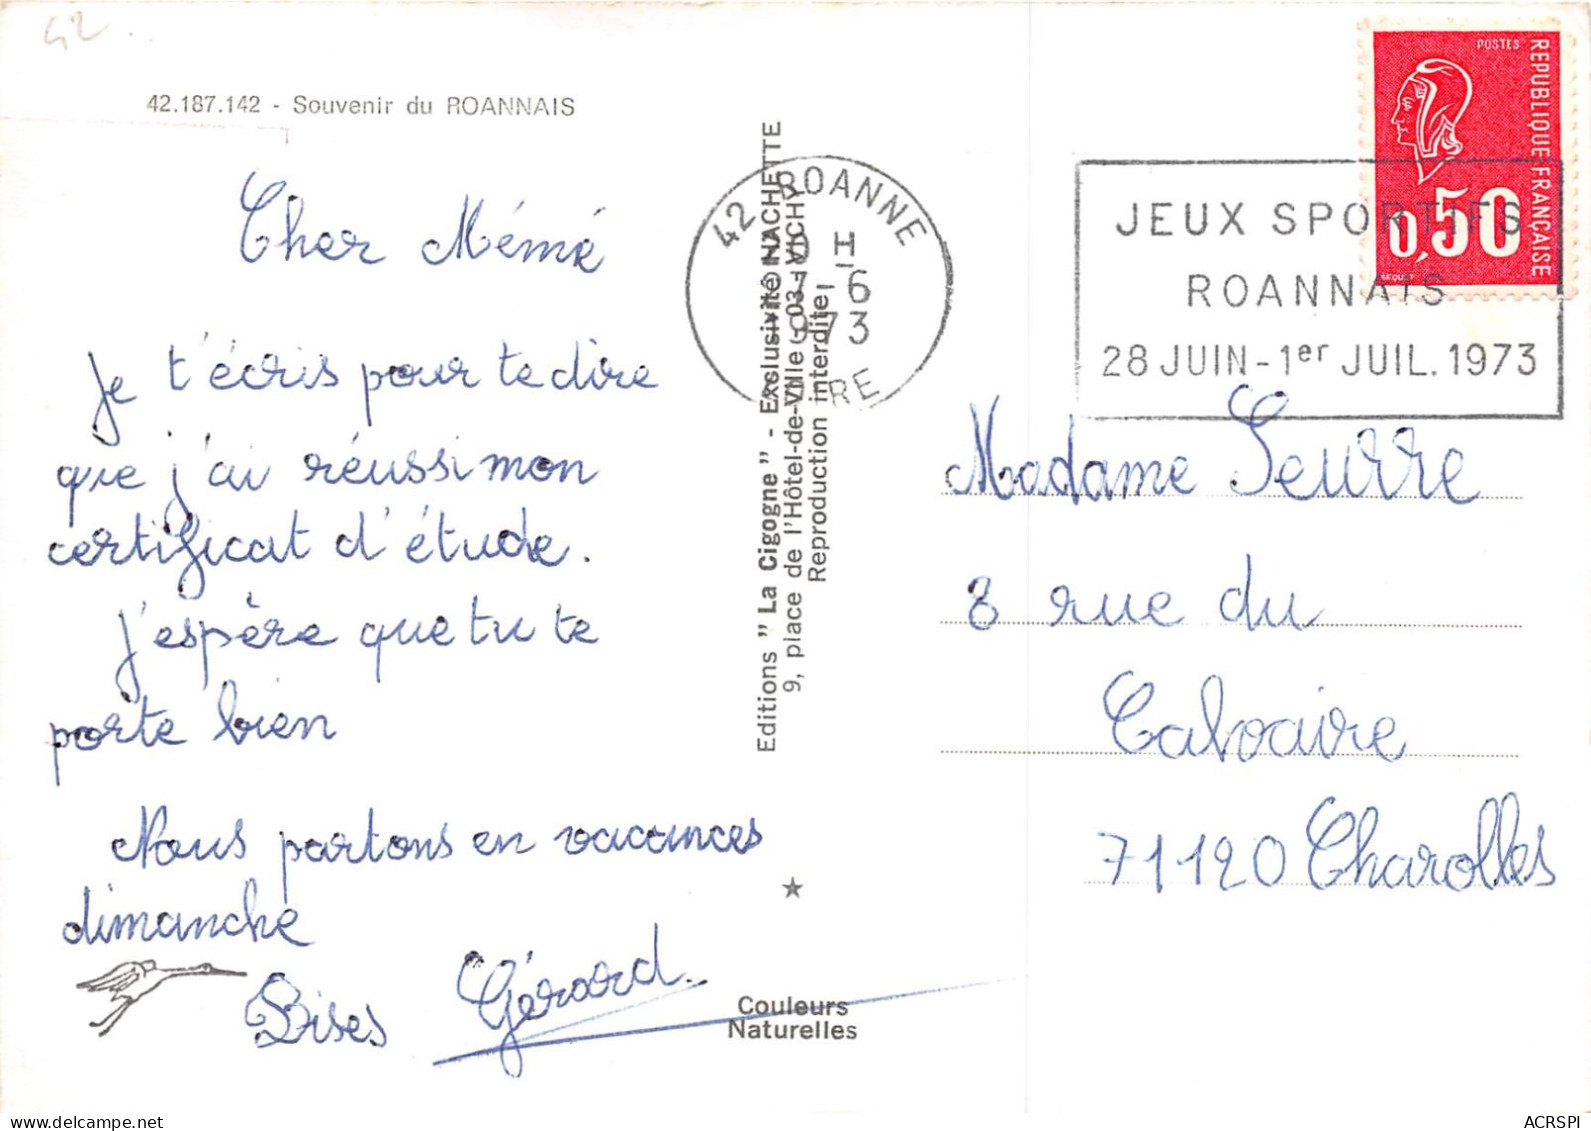 42.
42.187.142 - Souvenir du ROANNAIS
Cher Mémé
Je t'écris pour te dire
que j'ai réussi mon
certificat d'étude.
j'espère que tu te
porte bien
Nous partons en vacances
dimanche
Bises Gérard.
Editions " La Cigogne " - Exclusivité HACHETTE
9, place de l'Hôtel-de-Ville - 03 - VICHY
Reproduction interdite
Couleurs
Naturelles
42 ROANNE
H
7-6
1973
LOIRE
JEUX SPORTIFS
ROANNAIS
28 JUIN - 1er JUIL. 1973
POSTES
REPUBLIQUE FRANÇAISE
0,50
BEQUET
Madame Seurre
8 rue du
Calvaire
71120 Charolles
ACRSPI